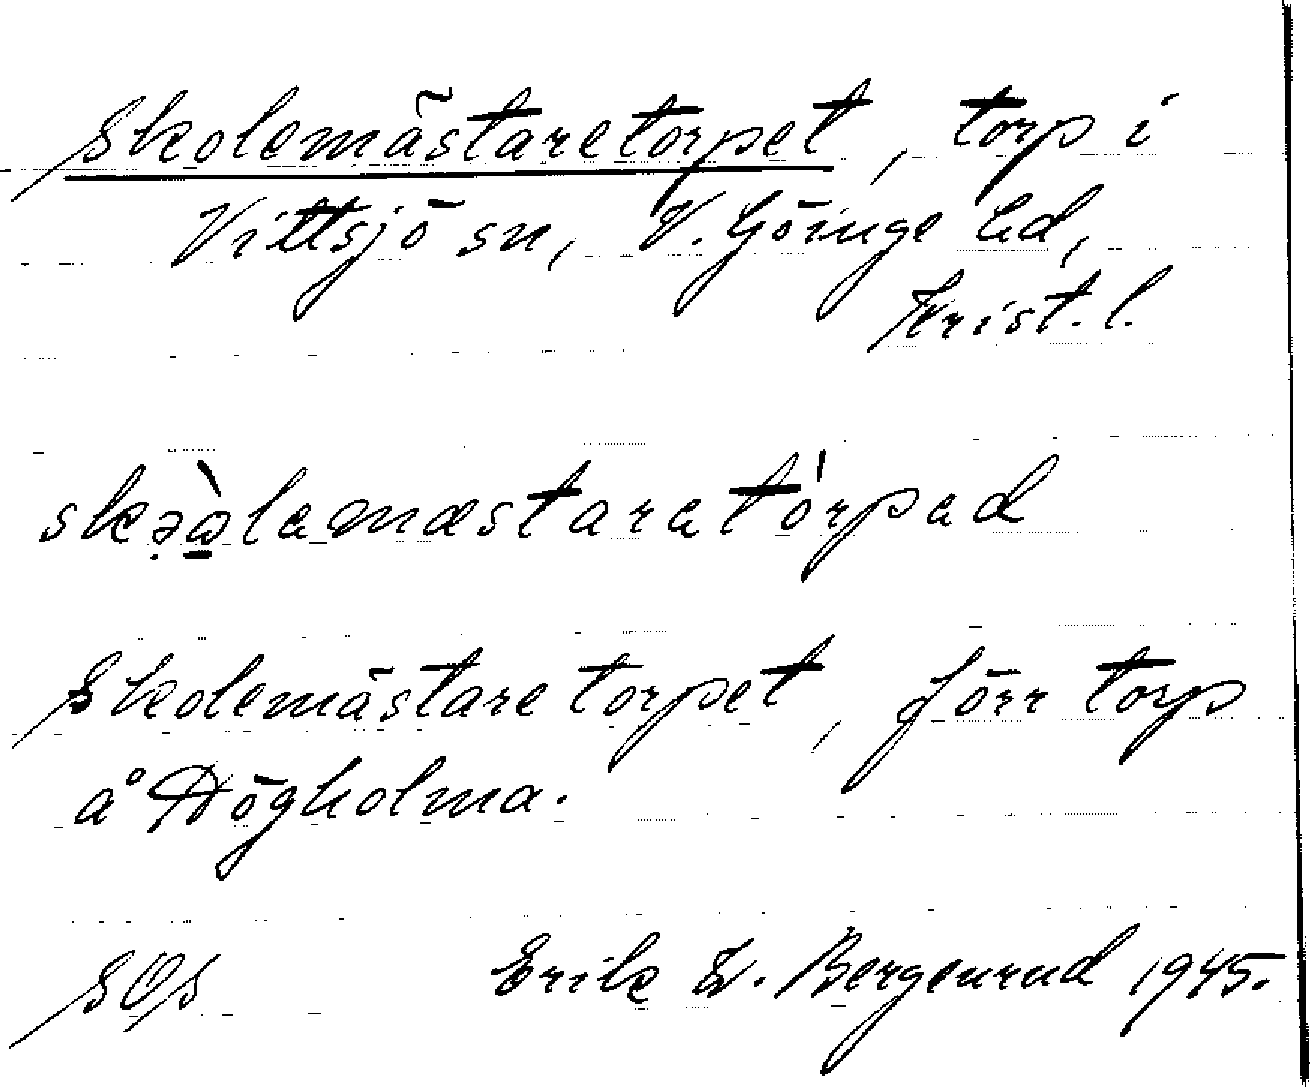 Skolemästaretorpet, torp i
Vittsjö sn, V. Göinge hd,
Krist. l.
skəàlamæstaratȯ́rpad
Skolemästaretorpet, förr torp
å Högholma.
SOS Erik W. Bergenrud 1945.